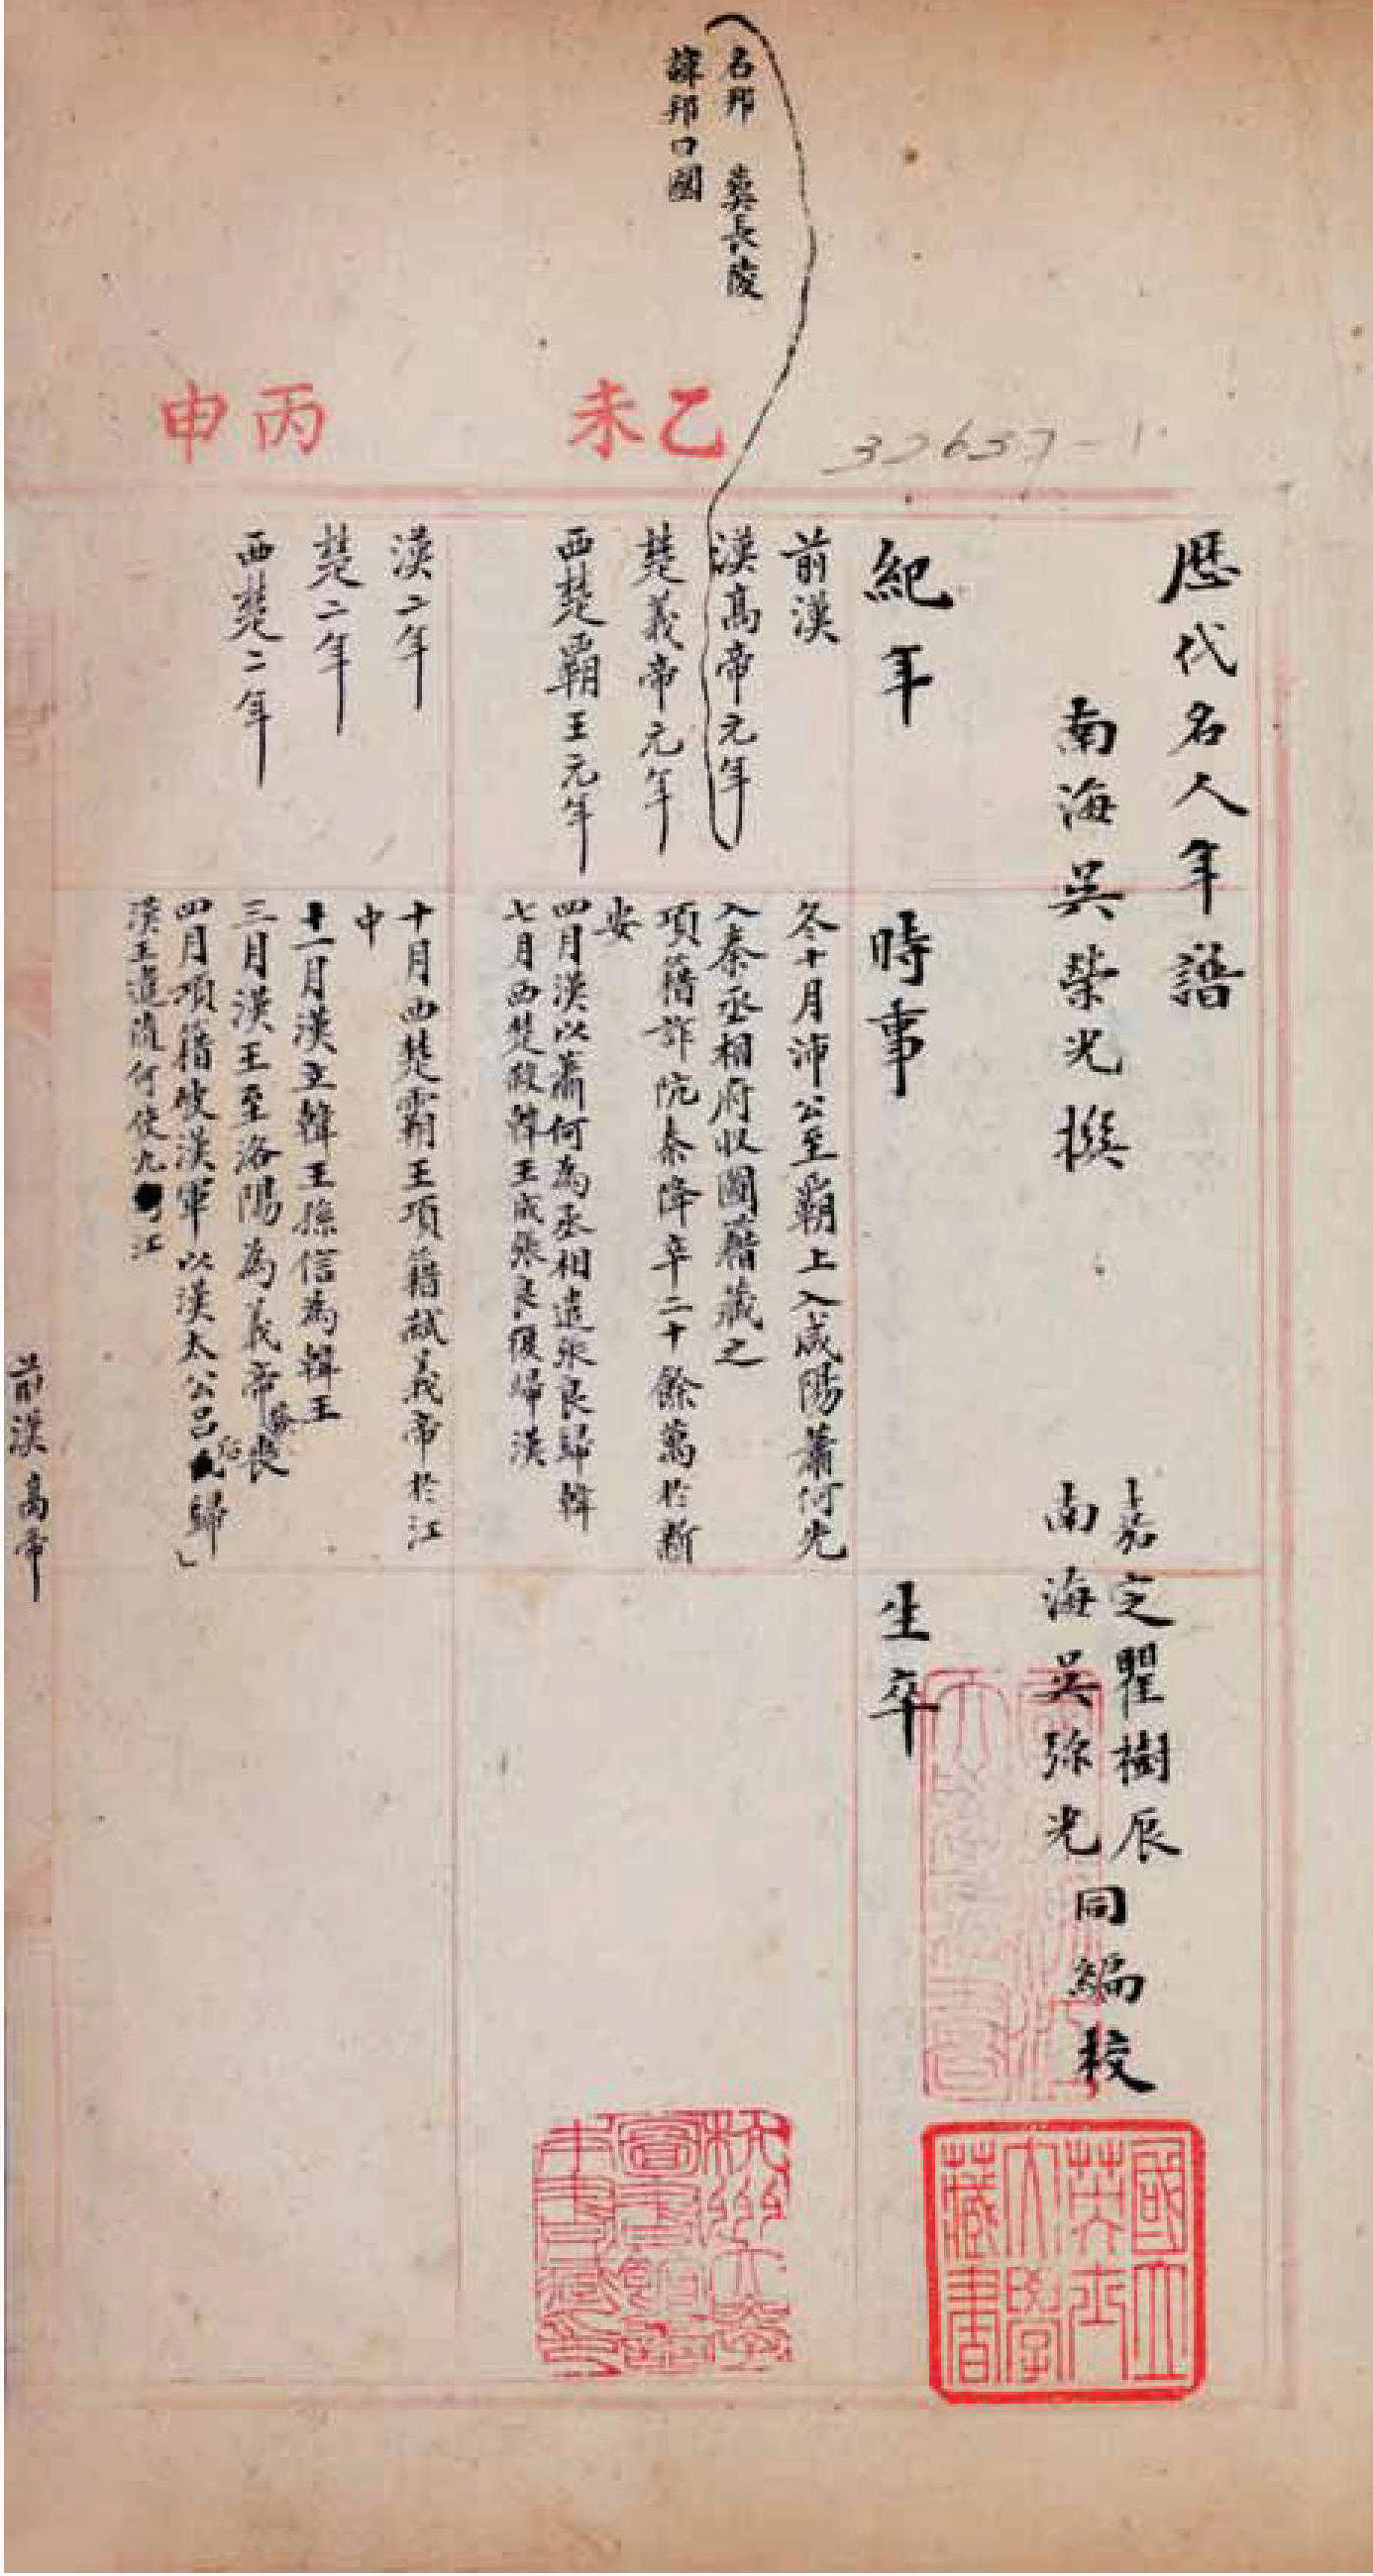 歷代名人年譜
南海吳榮光撰
嘉定瞿樹辰
南海吳弥光
同編校
紀年
時事
生卒
32637-1
乙未
名邦 葬長陵
諱邦曰國
前漢
漢高帝元年
楚義帝元年
西楚霸王元年
冬十月沛公至霸上入咸陽蕭何先
入秦丞相府收圖籍藏之
項籍詐阬秦降卒二十餘萬於新
安
四月漢以蕭何為丞相遣張良歸韓
七月西楚殺韓王成張良復歸漢
丙申
漢二年
楚二年
西楚二年
十月西楚霸王項籍弒義帝於江
中
十一月漢立韓王孫信為韓王
三月漢王至洛陽為義帝發喪
四月項籍破漢軍以漢太公呂后歸
漢王遣隨何使九江
前漢高帝
國立英士大學藏書